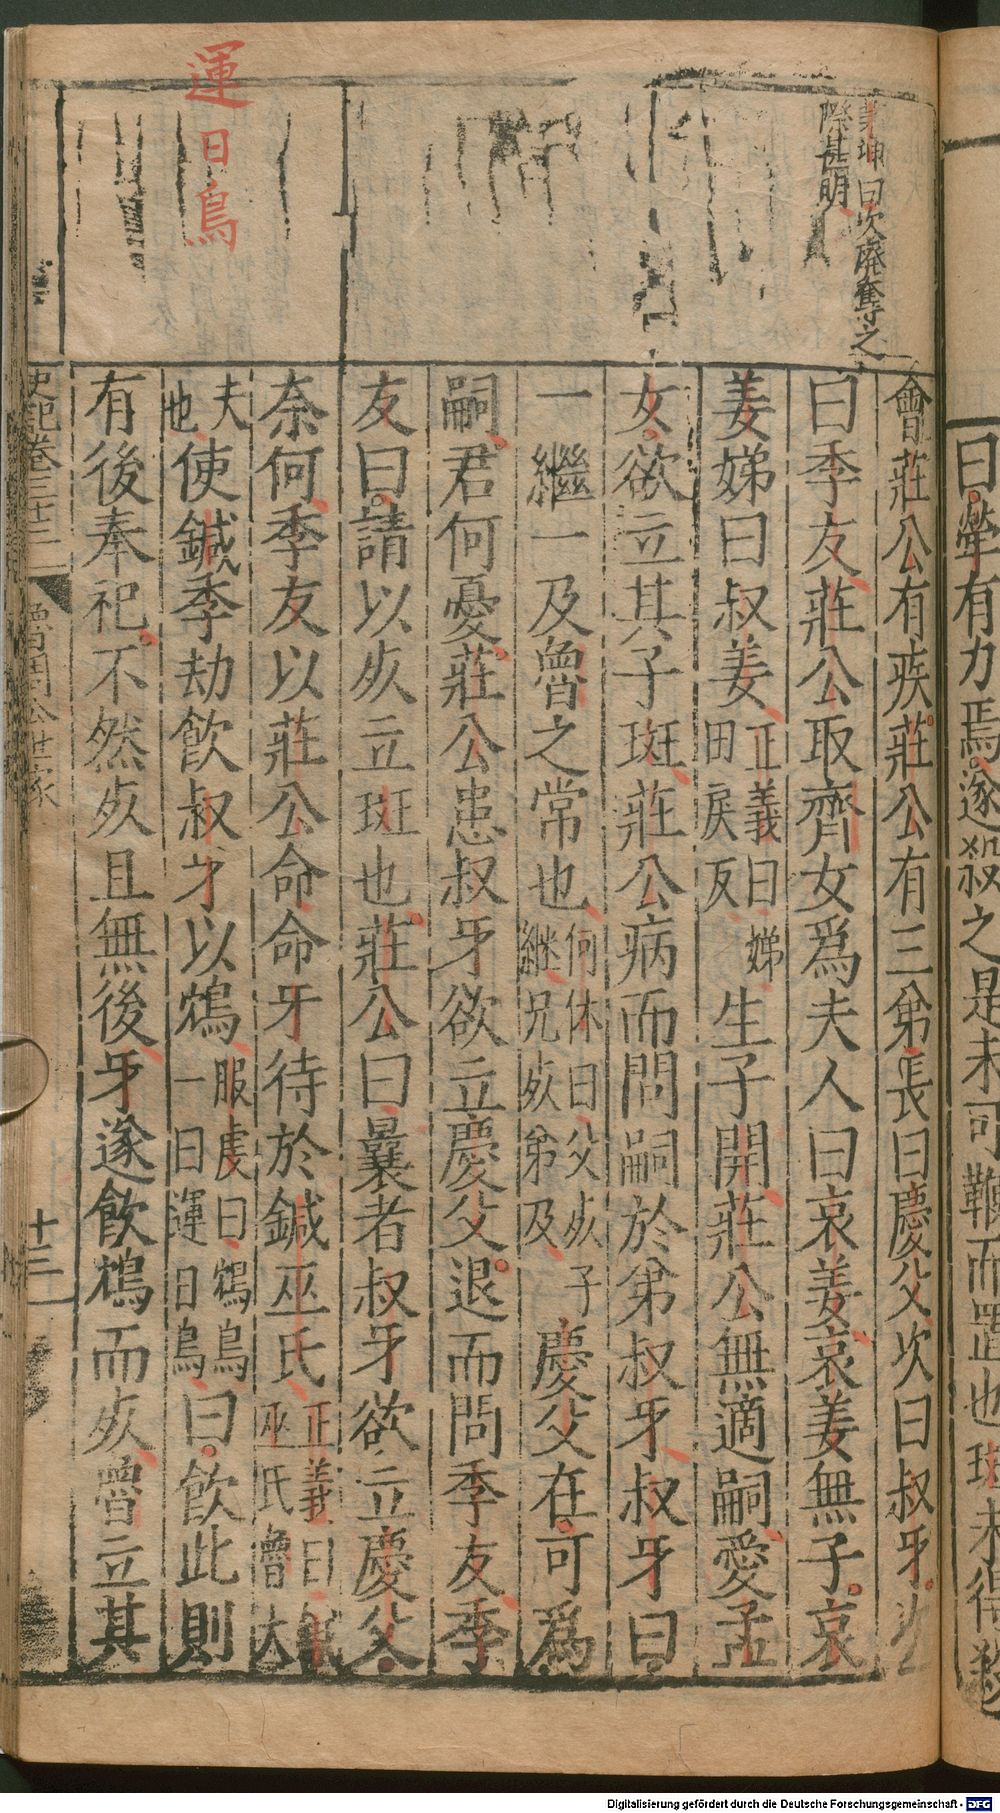 曰犖有力焉遂殺之是未可鞭而置也斑未得殺
茅坤曰次廢奪之
際甚明
會莊公有疾莊公有三弟長曰慶父次曰叔牙次
曰季友莊公取齊女爲夫人曰哀姜哀姜無子哀
姜娣曰叔姜正義曰娣田戾反生子開莊公無適嗣愛孟
女欲立其子斑莊公病而問嗣於弟叔牙叔牙曰
一繼一及魯之常也何休曰父死子継兄死弟及慶父在可爲
嗣君何憂莊公患叔牙欲立慶父退而問季友季
友曰請以死立斑也莊公曰曩者叔牙欲立慶父
奈何季友以莊公命命牙待於鍼巫氏正義曰鍼巫氏魯大
夫也使鍼季劫飲叔牙以鴆服虔曰鴆鳥一曰運日鳥曰飲此則
有後奉祀不然死且無後牙遂飲鴆而死魯立其
運日鳥
史記卷三十三
魯周公世家
十三
Digitalisierung gefördert durch die Deutsche Forschungsgemeinschaft - DFG